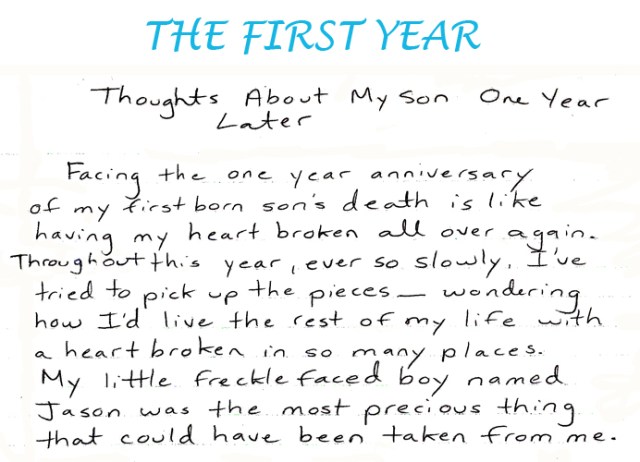 THE FIRST YEAR
Thoughts About My Son One Year
Later
Facing the one year anniversary
of my first born son's death is like
having my heart broken all over again.
Throughout this year, ever so slowly, I've
tried to pick up the pieces — wondering
how I'd live the rest of my life with
a heart broken in so many places.
My little freckle faced boy named
Jason was the most precious thing
that could have been taken from me.